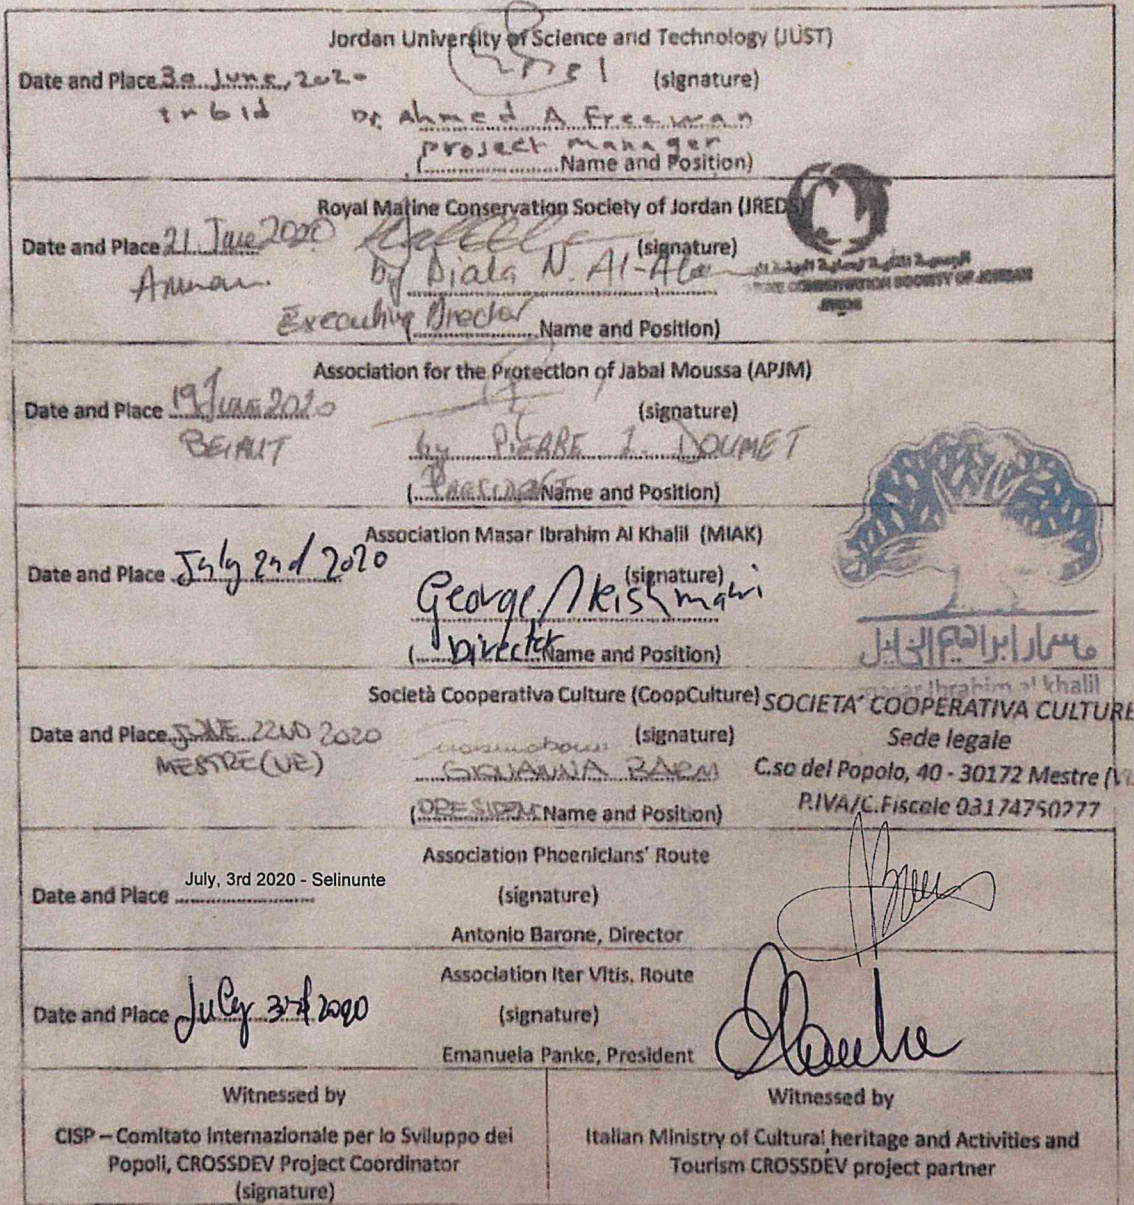 Jordan University of Science and Technology (JUST)
Date and Place 30 June, 2020 (signature)
Irbid Dr. Ahmed A Freewan
project manager
(..................Name and Position)
Royal Marine Conservation Society of Jordan (JREDS)
Date and Place 21 June 2020 (signature)
Amman. by Diala N. Al-
Executive Director
(..................Name and Position)
CONSERVATION SOCIETY OF JORDAN
JREDS
Association for the Protection of Jabal Moussa (APJM)
Date and Place 19 JUNE 2020 (signature)
BEIRUT by PIERRE I. DOUMET
PRESIDENT
(..................Name and Position)
Association Masar Ibrahim Al Khalil (MIAK)
Date and Place July 2nd 2020 (signature)
George Rishmawi
(Director Name and Position)
مسار ابراهيم الخليل
masar Ibrahim al khalil
Società Cooperativa Culture (CoopCulture)
Date and Place JUNE 22ND 2020 (signature)
MESTRE (VE) GIOVANNA BARNI
(PRESIDENT Name and Position)
SOCIETA' COOPERATIVA CULTURE
Sede legale
C.so del Popolo, 40 - 30172 Mestre (V
P.IVA/C.Fiscale 03174750277
Association Phoenicians' Route
Date and Place July, 3rd 2020 - Selinunte (signature)
Antonio Barone, Director
Association Iter Vitis, Route
Date and Place July 3rd 2020 (signature)
Emanuela Panke, President
Witnessed by
CISP – Comitato Internazionale per lo Sviluppo dei
Popoli, CROSSDEV Project Coordinator
(signature)
Witnessed by
Italian Ministry of Cultural heritage and Activities and
Tourism CROSSDEV project partner